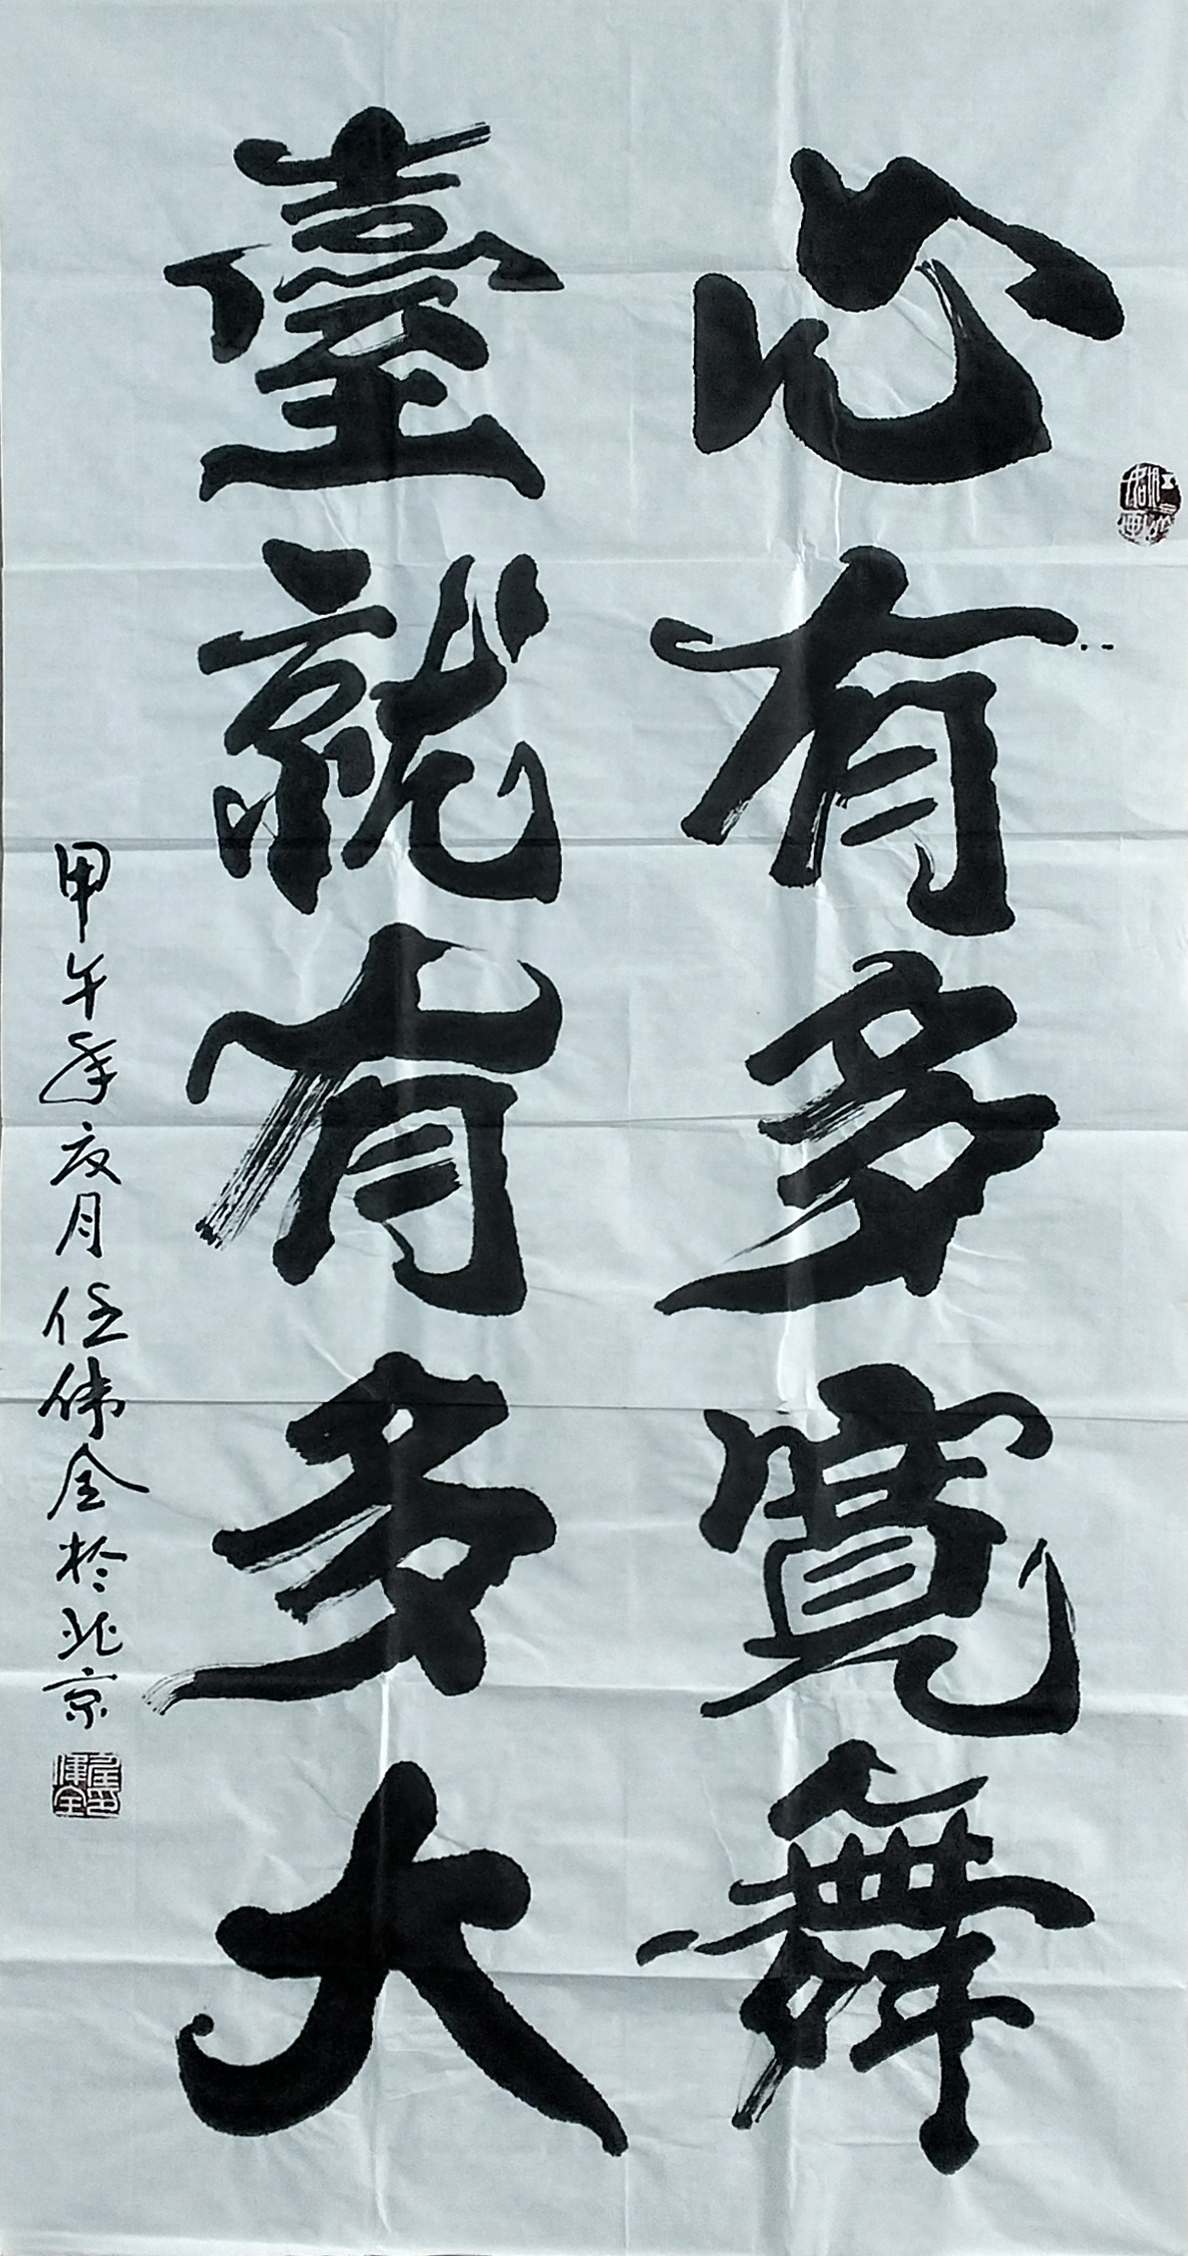 心有多寬舞
臺就有多大
甲午年夜月任伟全於北京